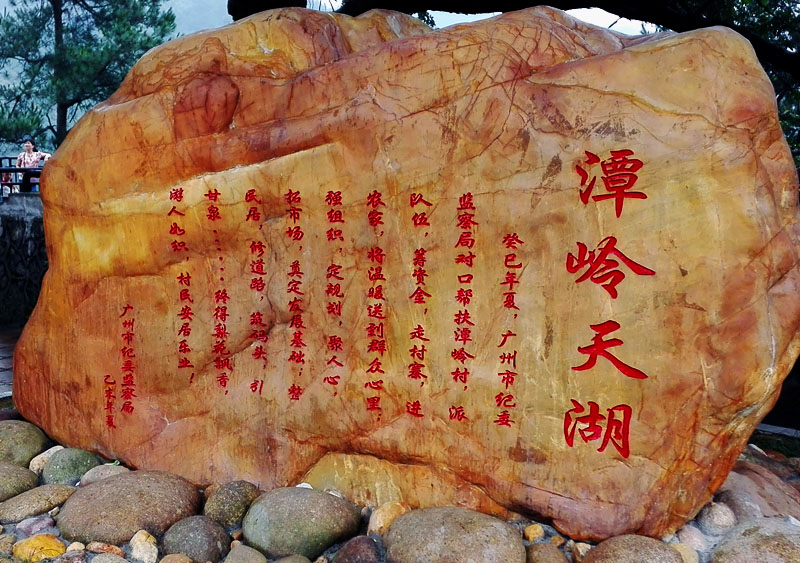 潭岭天湖
癸巳年夏，广州市纪委
监察局对口帮扶潭岭村，派
队伍，筹资金，走村寨，进
农家，将温暖送到群众心里；
强组织，定规划，聚人心；
拓市场，奠定发展基础；整
民居，修道路，筑码头，引
甘泉……终得梨花飘香，
游人如织，村民安居乐业；
广州市纪委监察局
己亥年夏